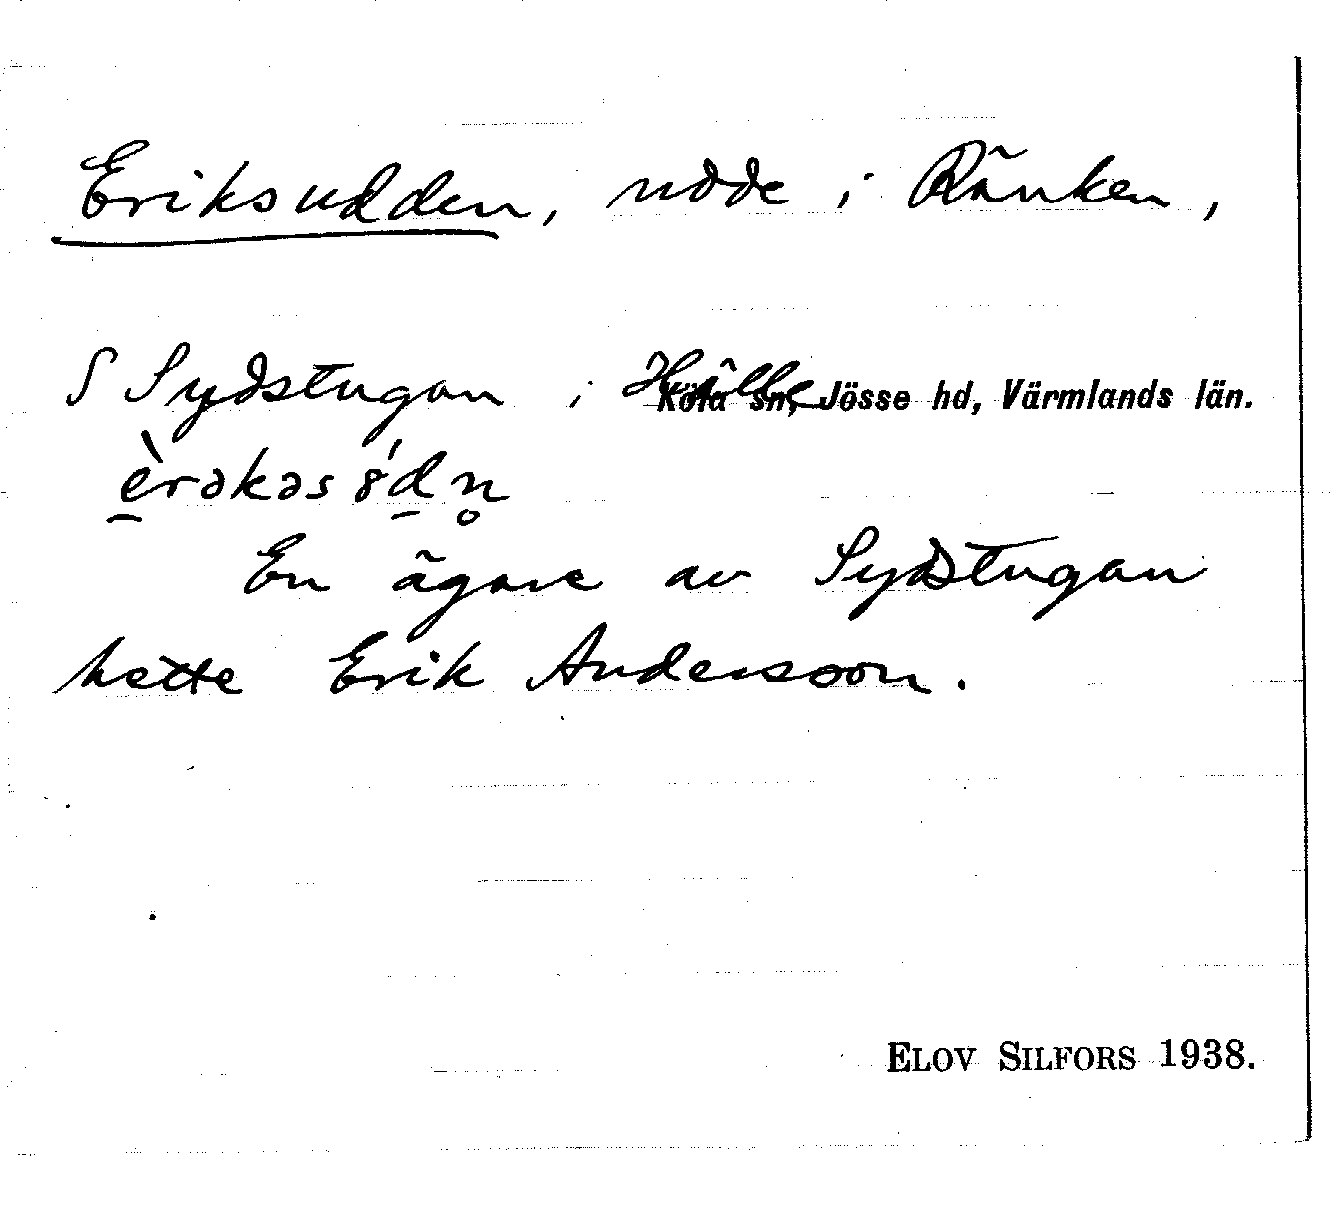 Eriksudden, udde i Ränken,
S Sydstugan i Hålle Köla sn, Jösse hd, Värmlands län.
è̱rəkəs8́ḏn̥
En ägare av Sydstugan
hette Erik Andersson.
ELOV SILFORS 1938.